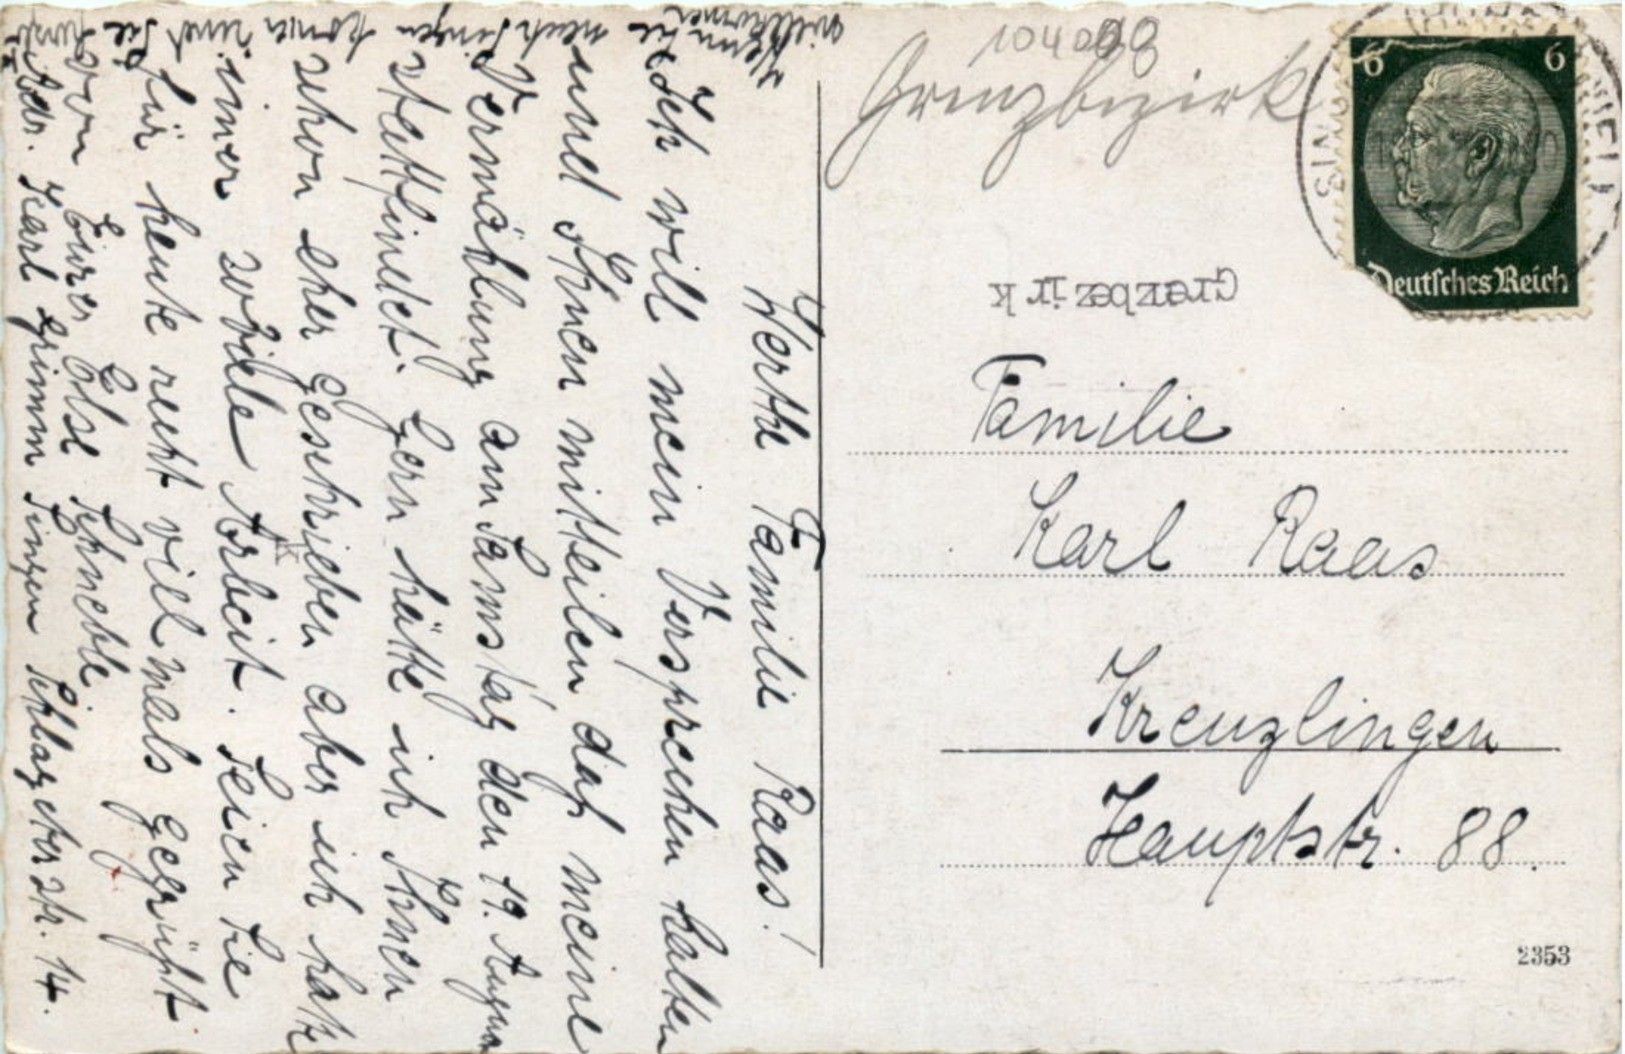 Werthe Familie Raas!
Ich will mein Versprechen halten
und Ihnen mitteilen daß meine
Vermählung am Samstag den 19. August
stattfindet. Gern hätte ich Ihnen
schon eher geschrieben aber ich hate
imer zoviele Arbeit. Seien Sie
für heute recht vielmals gegrüßt
von Eurer Else
Adr. Karl Grimm Singen Schlagetterstr. 14.
Wenn Sie nach Singen komen sind Sie
willkomen
104000
Grenzbezirk
6 6
Deutsches Reich
Grenzbezirk
Familie
Karl Raas
Kreuzlingen
Hauptstr. 88.
2353